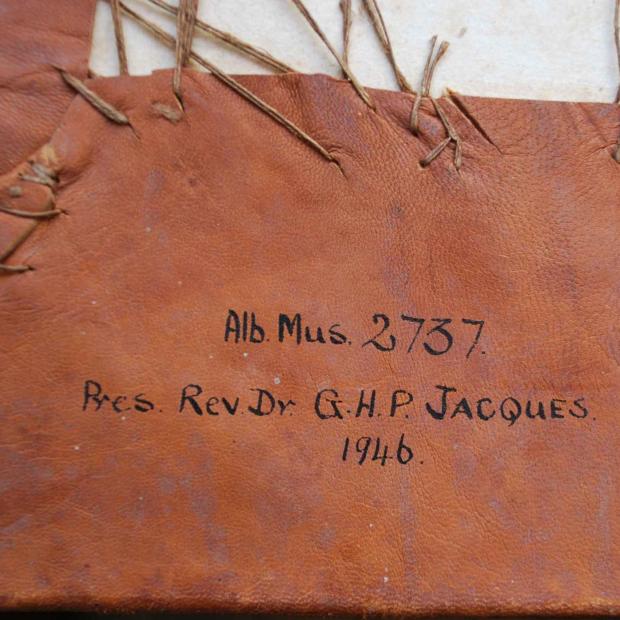 Alb. Mus. 2737.
Pres. Rev. Dr G.H.P. JACQUES.
1946.